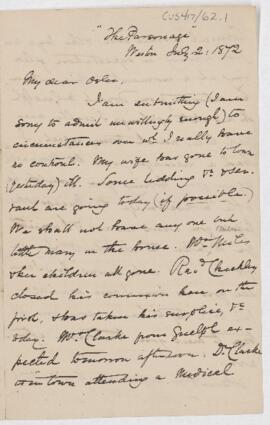 CUS417/62.1
"The Parsonage"
Weston July 2: 1872
My dear Osler.
I am submitting (I am
sorry to admit unwillingly enough) to
circumstances over wh I really have
no control. My wife has gone to town
(yesterday) Some bedding &
are going today (if possible.)
We shall not have any one but
little many in the house. Mrs
& her children all gone. Revd Checkley
closed his connexion here on the
first, & has taken his surplice, &c
today. Mr Clarke from Guelph ex-
pected tomorrow afternoon. Dr Clarke
is in town attending a Medical